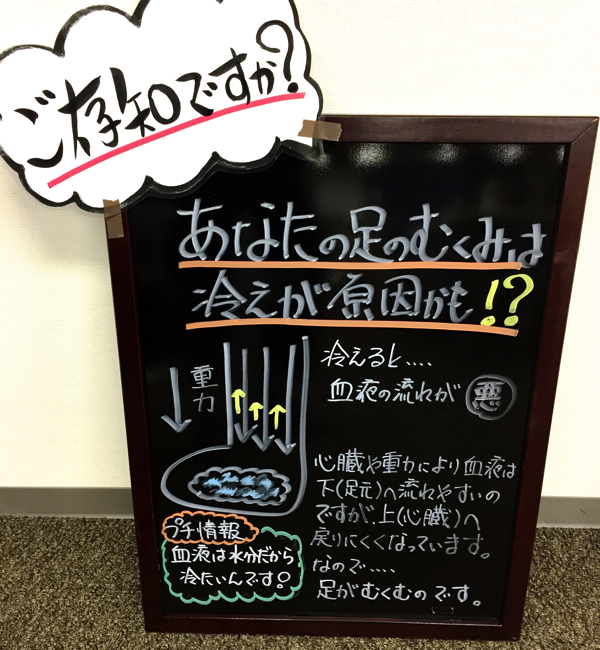 ご存知ですか?
あなたの足のむくみは
冷えが原因かも!?
重力
冷えると....
血液の流れが 悪
心臓や重力により血液は
下(足元)へ流れやすいの
ですが、上(心臓)へ
戻りにくくなっています。
なので....
足がむくむのです。
プチ情報
血液は水分だから
冷たいんです!